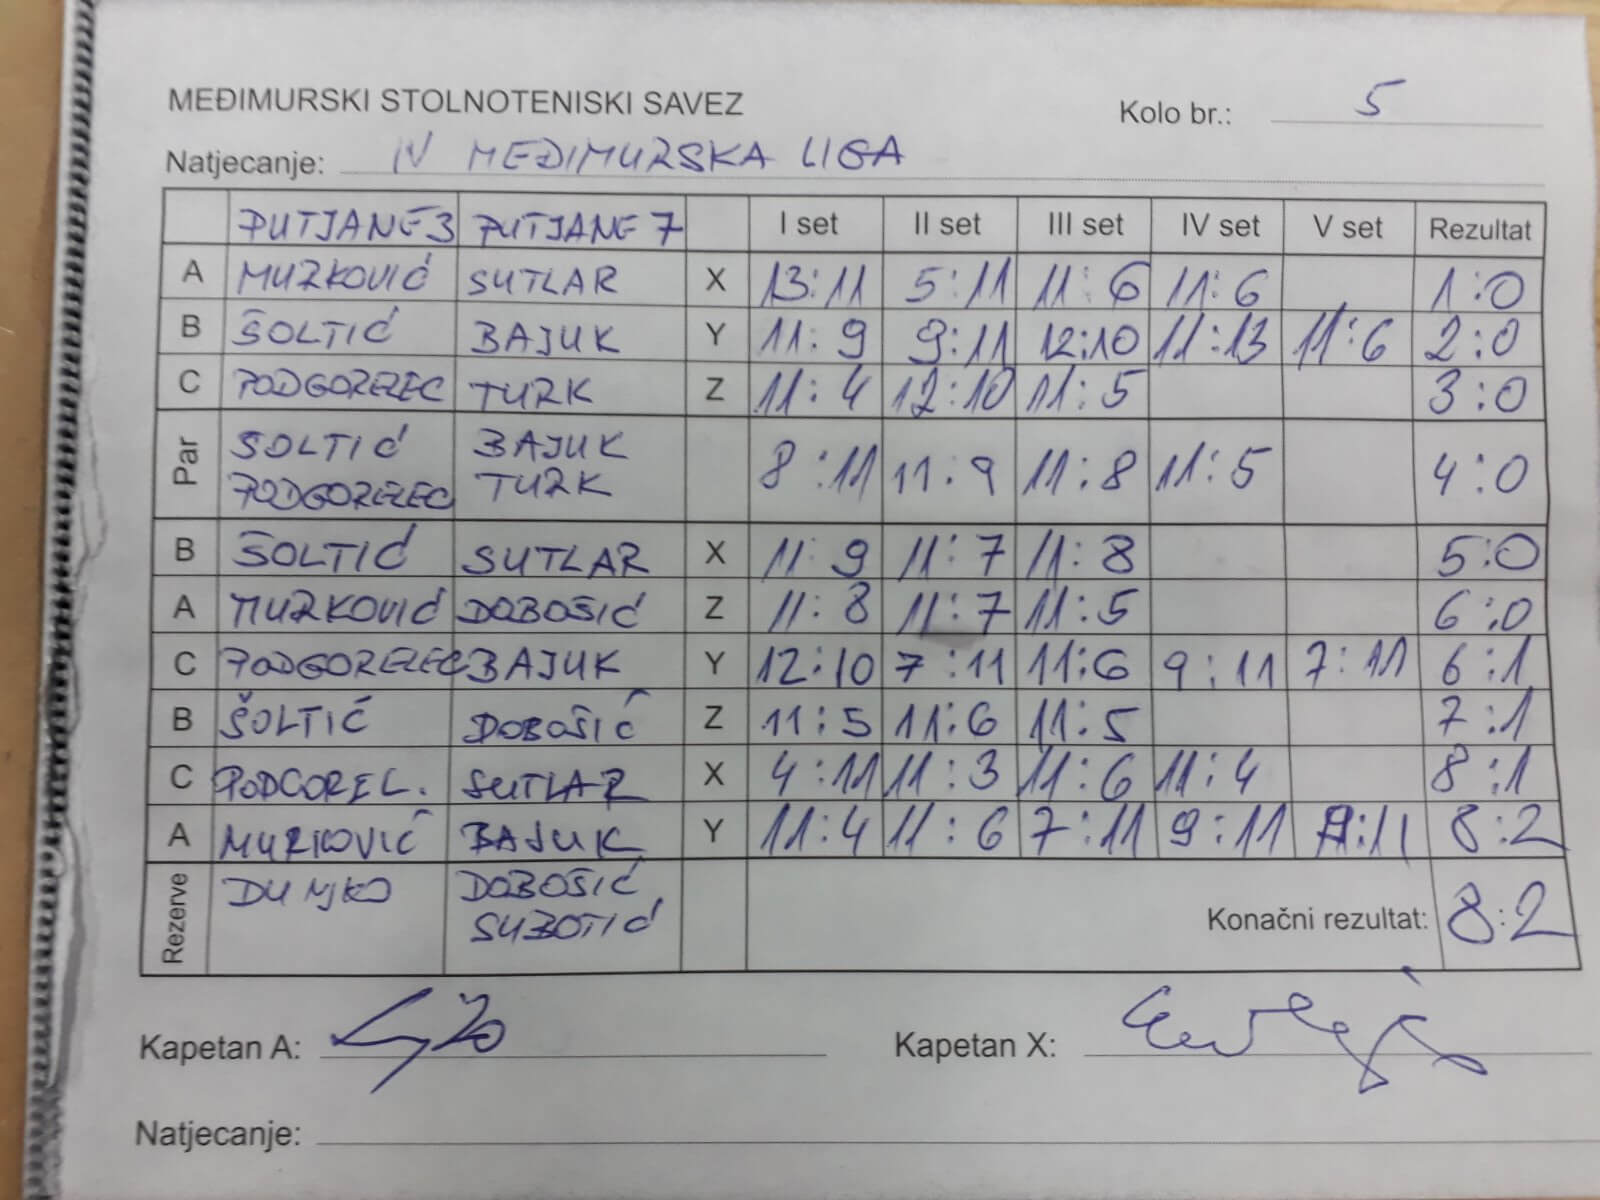 MEĐIMURSKI STOLNOTENISKI SAVEZ
Kolo br.: 5
Natjecanje: IV MEĐIMURSKA LIGA
PUTJANE 3 PUTJANE 7 I set II set III set IV set V set Rezultat
A MURKOVIĆ SUTLAR X 13:11 5:11 11:6 11:6 1:0
B ŠOLTIĆ BAJUK Y 11:9 9:11 12:10 11:13 11:6 2:0
C PODGORELEC TURK Z 11:4 12:10 11:5 3:0
Par ŠOLTIĆ PODGORELEC BAJUK TURK 8:11 11:9 11:8 11:5 4:0
B ŠOLTIĆ SUTLAR X 11:9 11:7 11:8 5:0
A MURKOVIĆ DOBOŠIĆ Z 11:8 11:7 11:5 6:0
C PODGORELEC BAJUK Y 12:10 7:11 11:6 9:11 7:11 6:1
B ŠOLTIĆ DOBOŠIĆ Z 11:5 11:6 11:5 7:1
C PODGOREL. SUTLAR X 4:11 11:3 11:6 11:4 8:1
A MURKOVIĆ BAJUK Y 11:4 11:6 7:11 9:11 :11 8:2
Rezerve DUNJKO DOBOŠIĆ SUBOTIĆ Konačni rezultat: 8:2
Kapetan A:
Kapetan X:
Natjecanje: